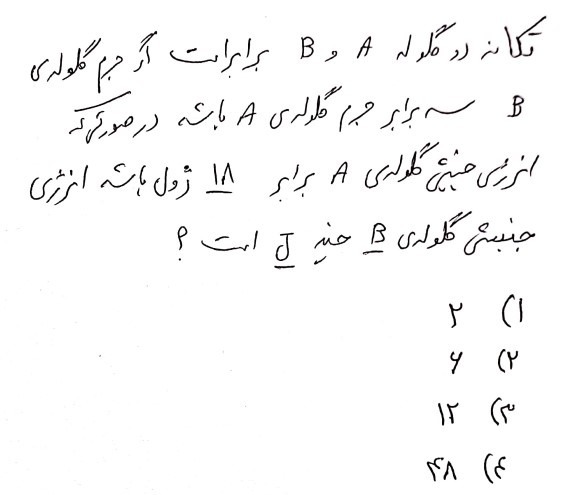 تکانه دو گلوله A و B برابر است اگر جرم گلوله‌ی
B سه برابر جرم گلوله‌ی A باشد در صورتی‌که
انرژی جنبشی گلوله‌ی A برابر ۱۸ ژول باشد انرژی
جنبشی گلوله‌ی B چند J است ؟
۱) ۲
۲) ۶
۳) ۱۲
۴) ۴۸